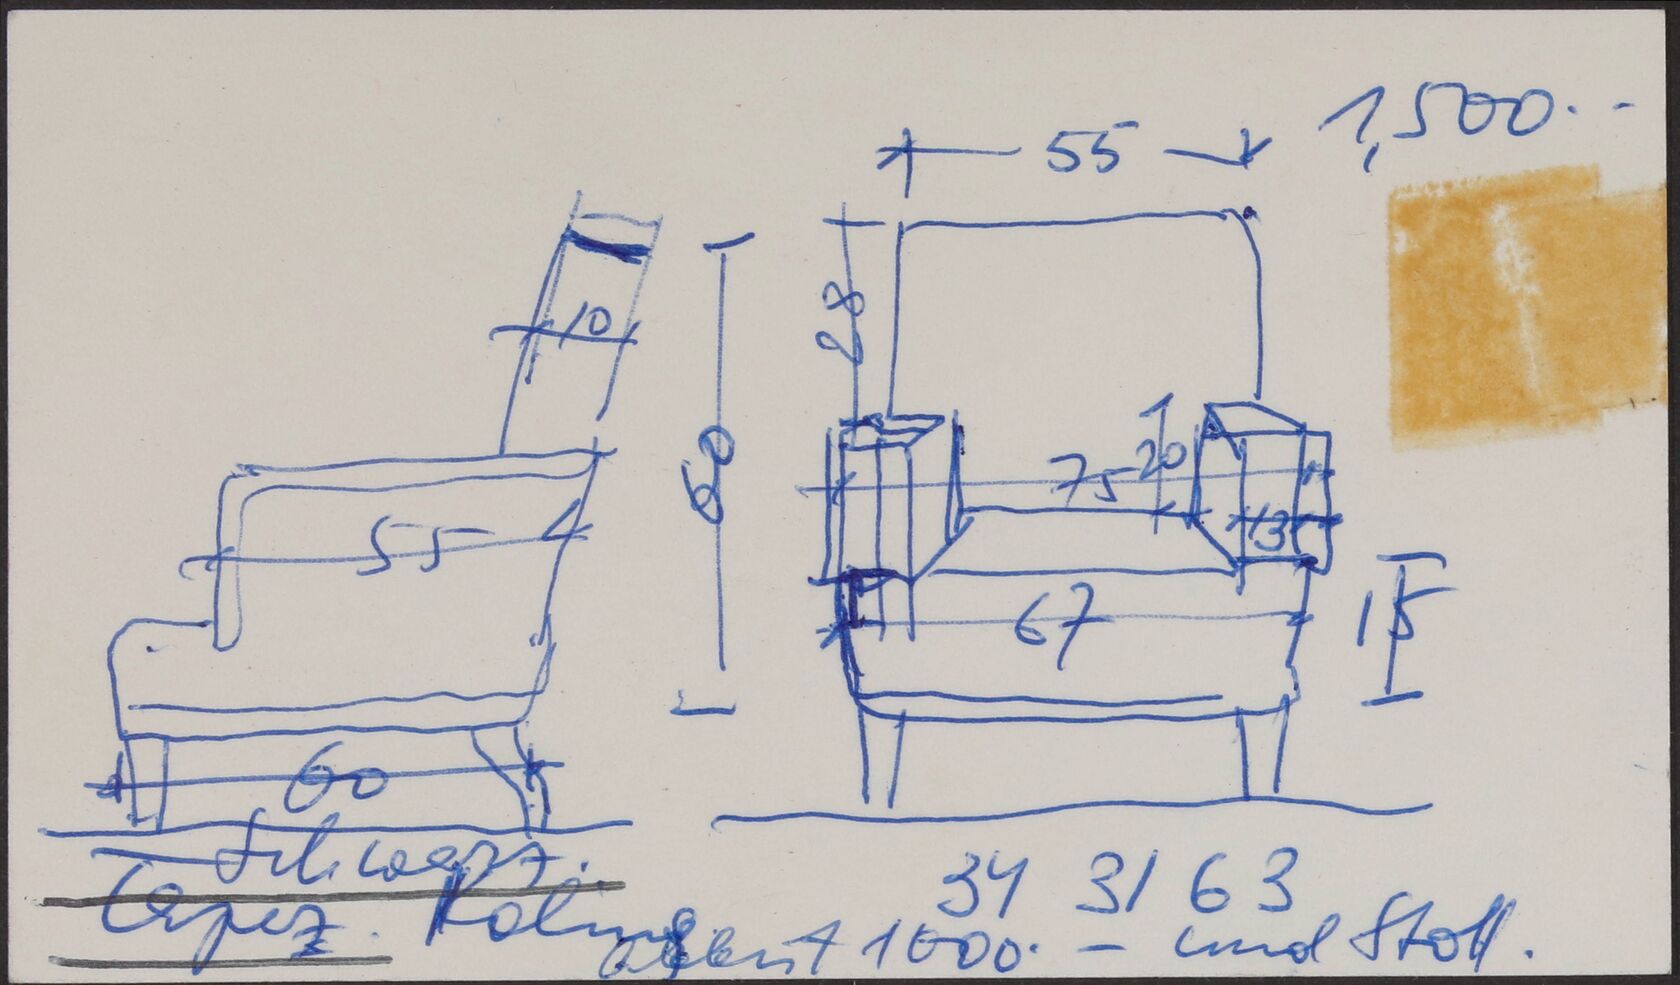 1,500.--
55
10
28
60
75
20
13
55
67
15
60
Schwarz.
34 31 63
Tapez.
1000.- und Stoff.